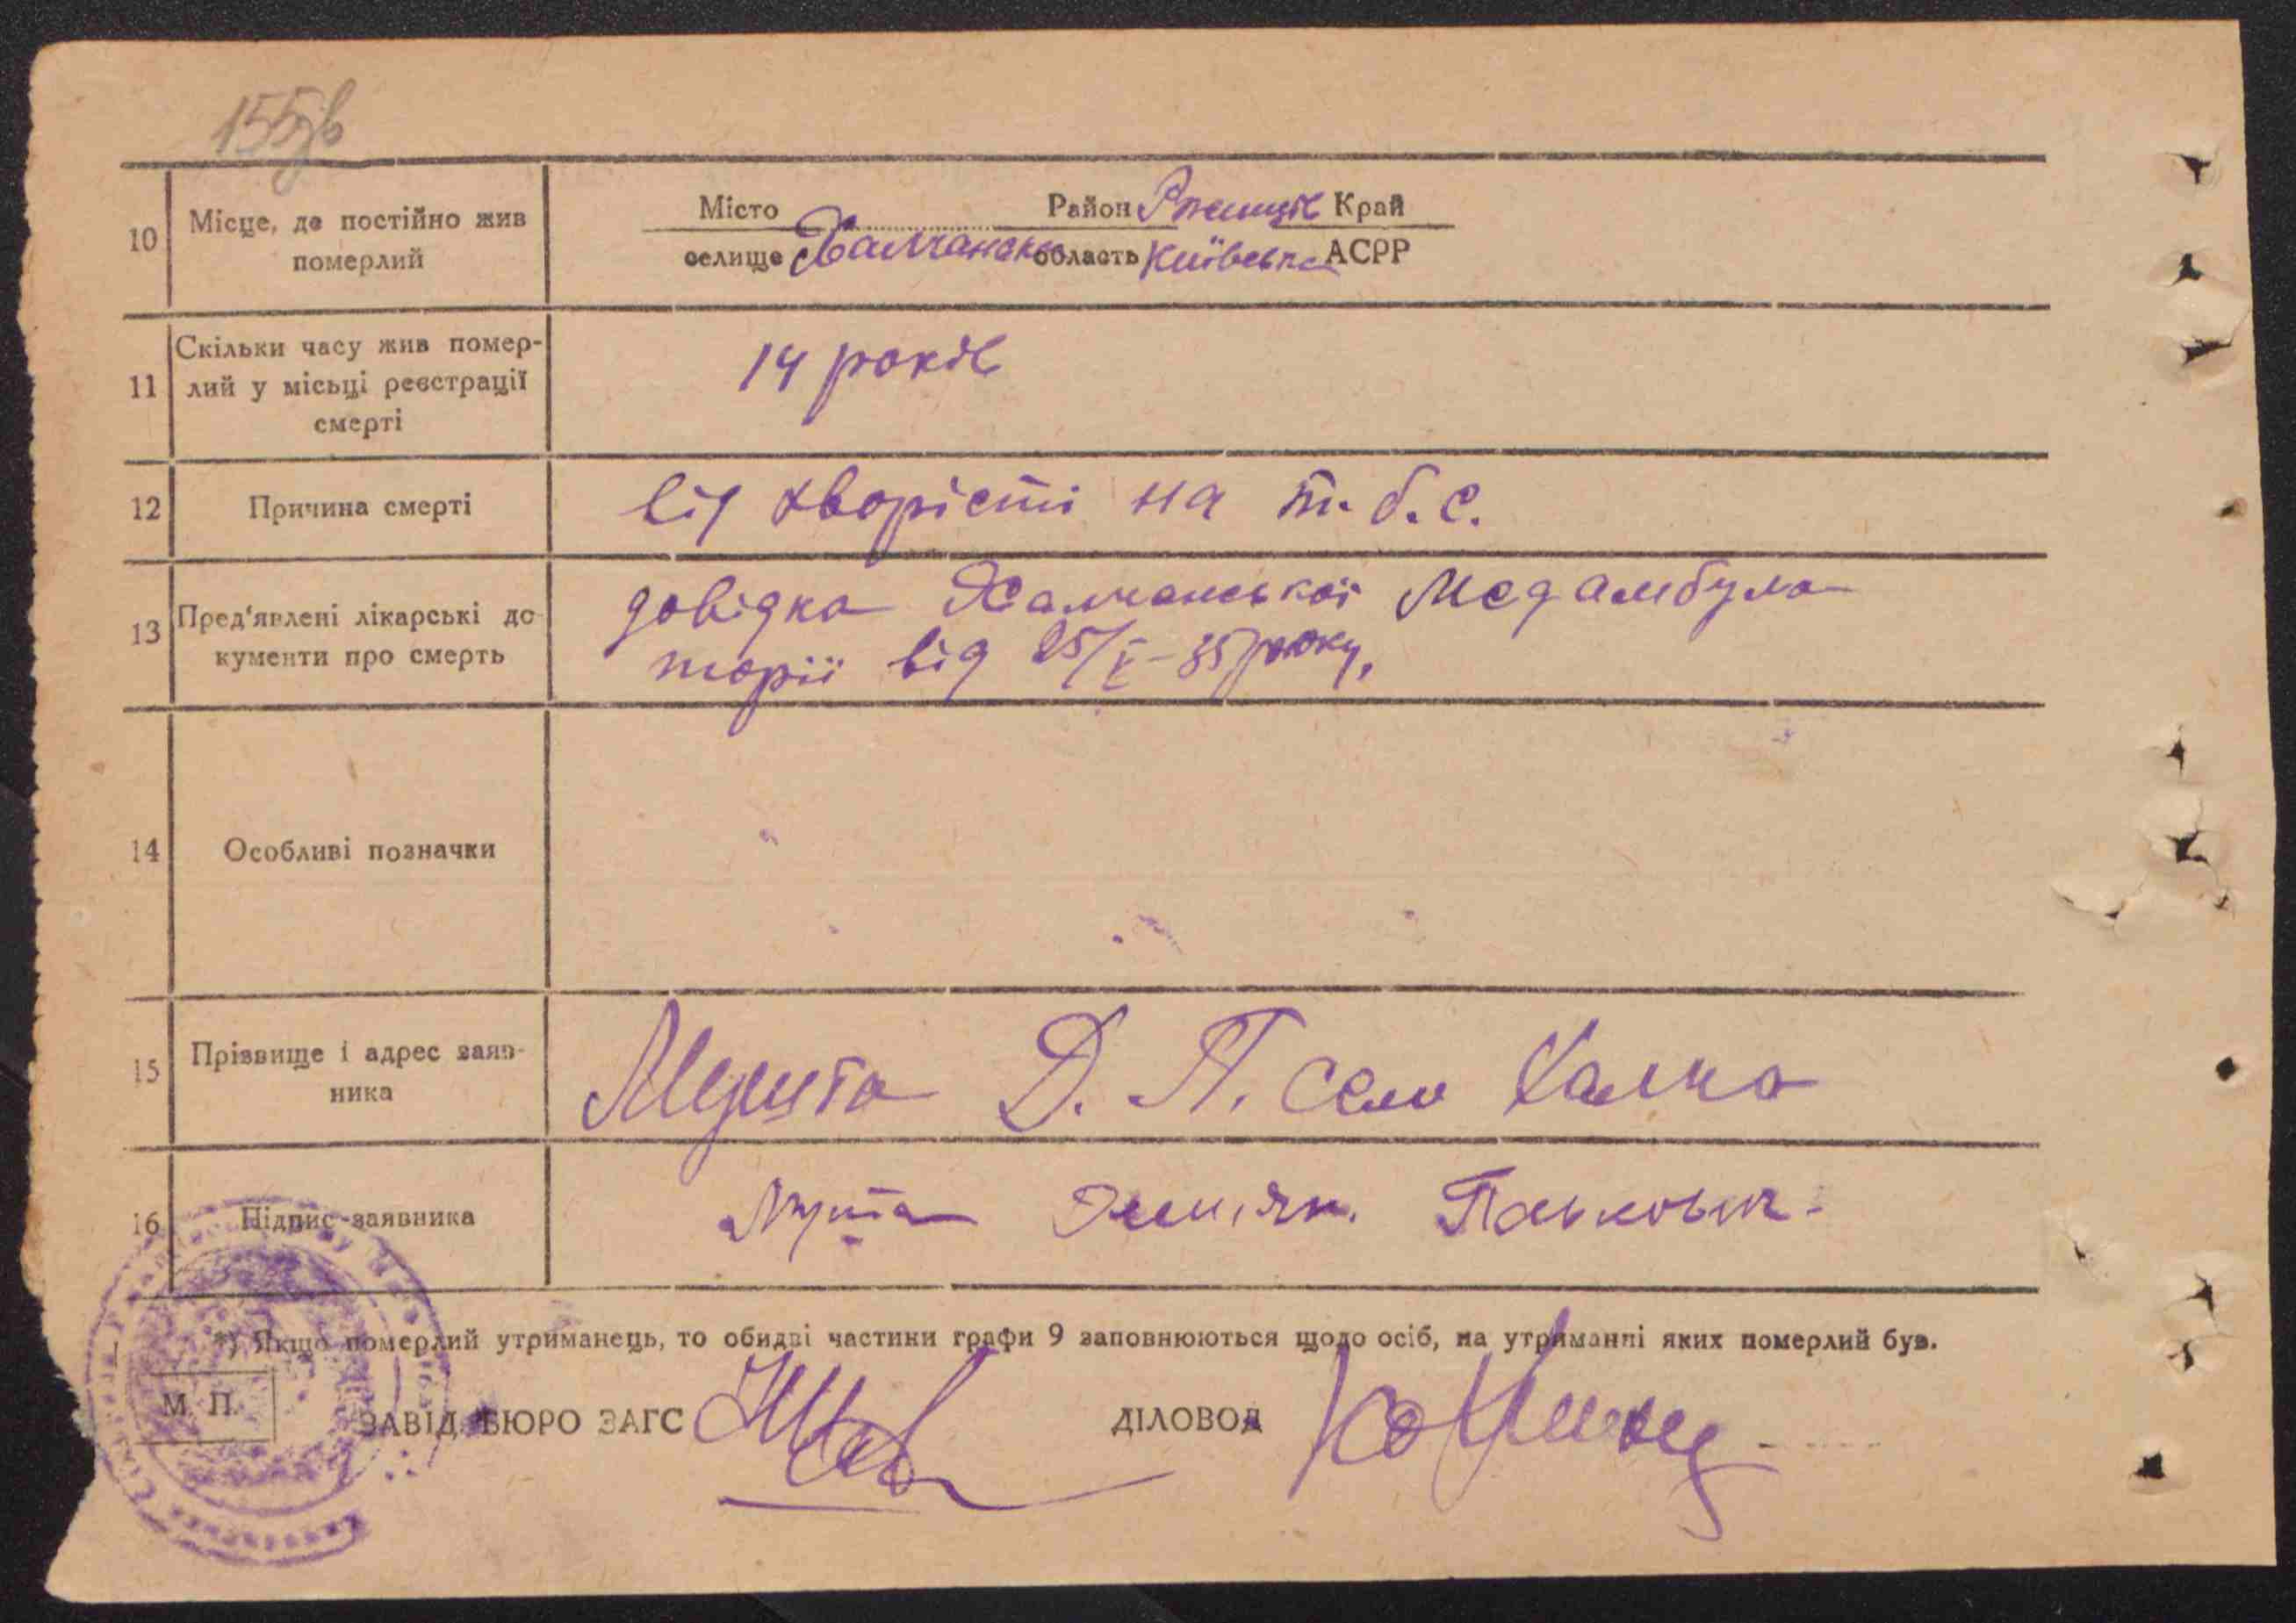 10 Місце, де постійно жив померлий
Місто Район Ржищів Край
селище Халчанськ область Київська АСРР
11 Скільки часу жив помер-
лий у місьці реєстрації
смерті
14 років
12 Причина смерті
від хворісті на т. б. с.
13 Пред'явлені лікарські до-
кументи про смерть
довідка Халчанської Медамбула
торії від 25/V-35 року,
14 Особливі позначки
15 Прізвище і адрес заяв-
ника
Д. П. село Халча
16 Підпис заявника
*) Якщо померлий утриманець, то обидві частини графи 9 заповнюються щодо осіб, на утриманні яких померлий був.
М. П.
ЗАВІД. БЮРО ЗАГС
ДІЛОВОД